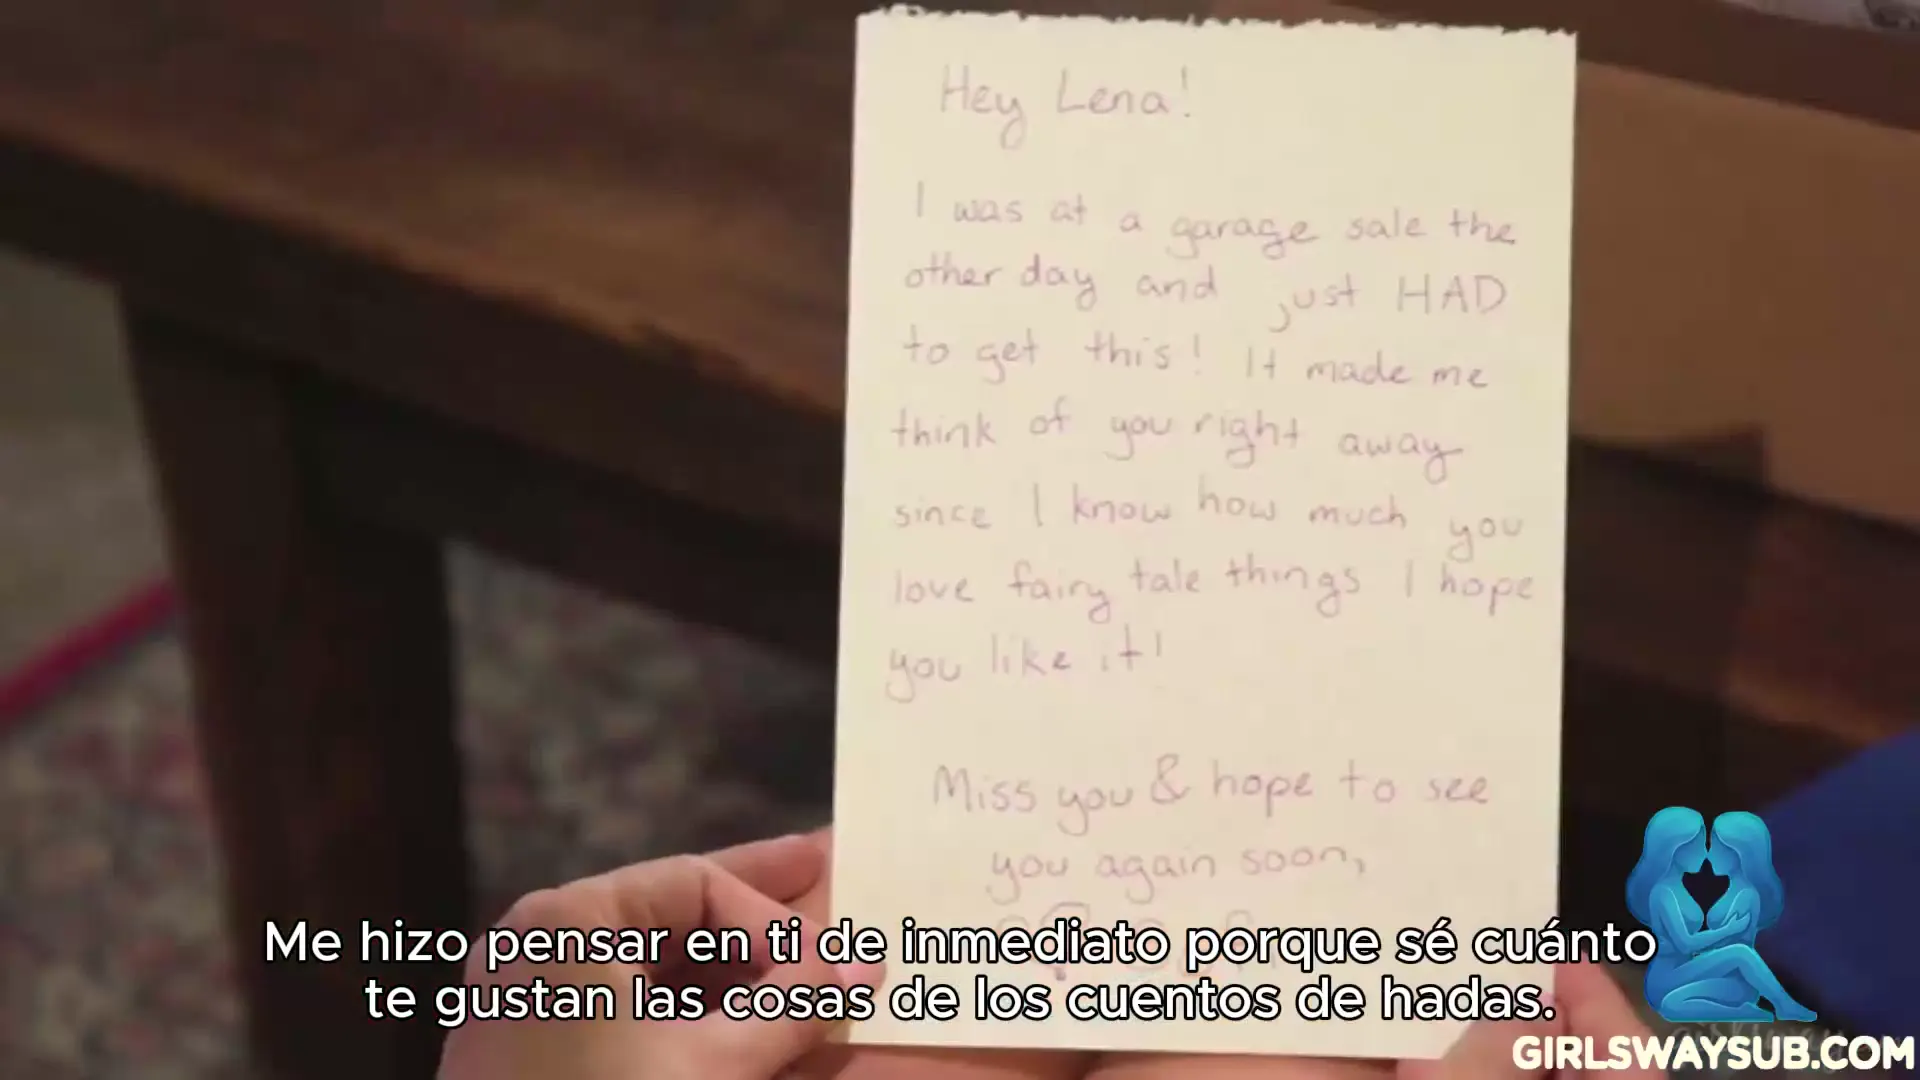 Hey Lena!
I was at a garage sale the
other day and just HAD
to get this! It made me
think of you right away
since I know how much you
love fairy tale things I hope
you like it!
Miss you & hope to see
you again soon,
Me hizo pensar en ti de inmediato porque sé cuánto
te gustan las cosas de los cuentos de hadas.
GIRLSWAYSUB.COM